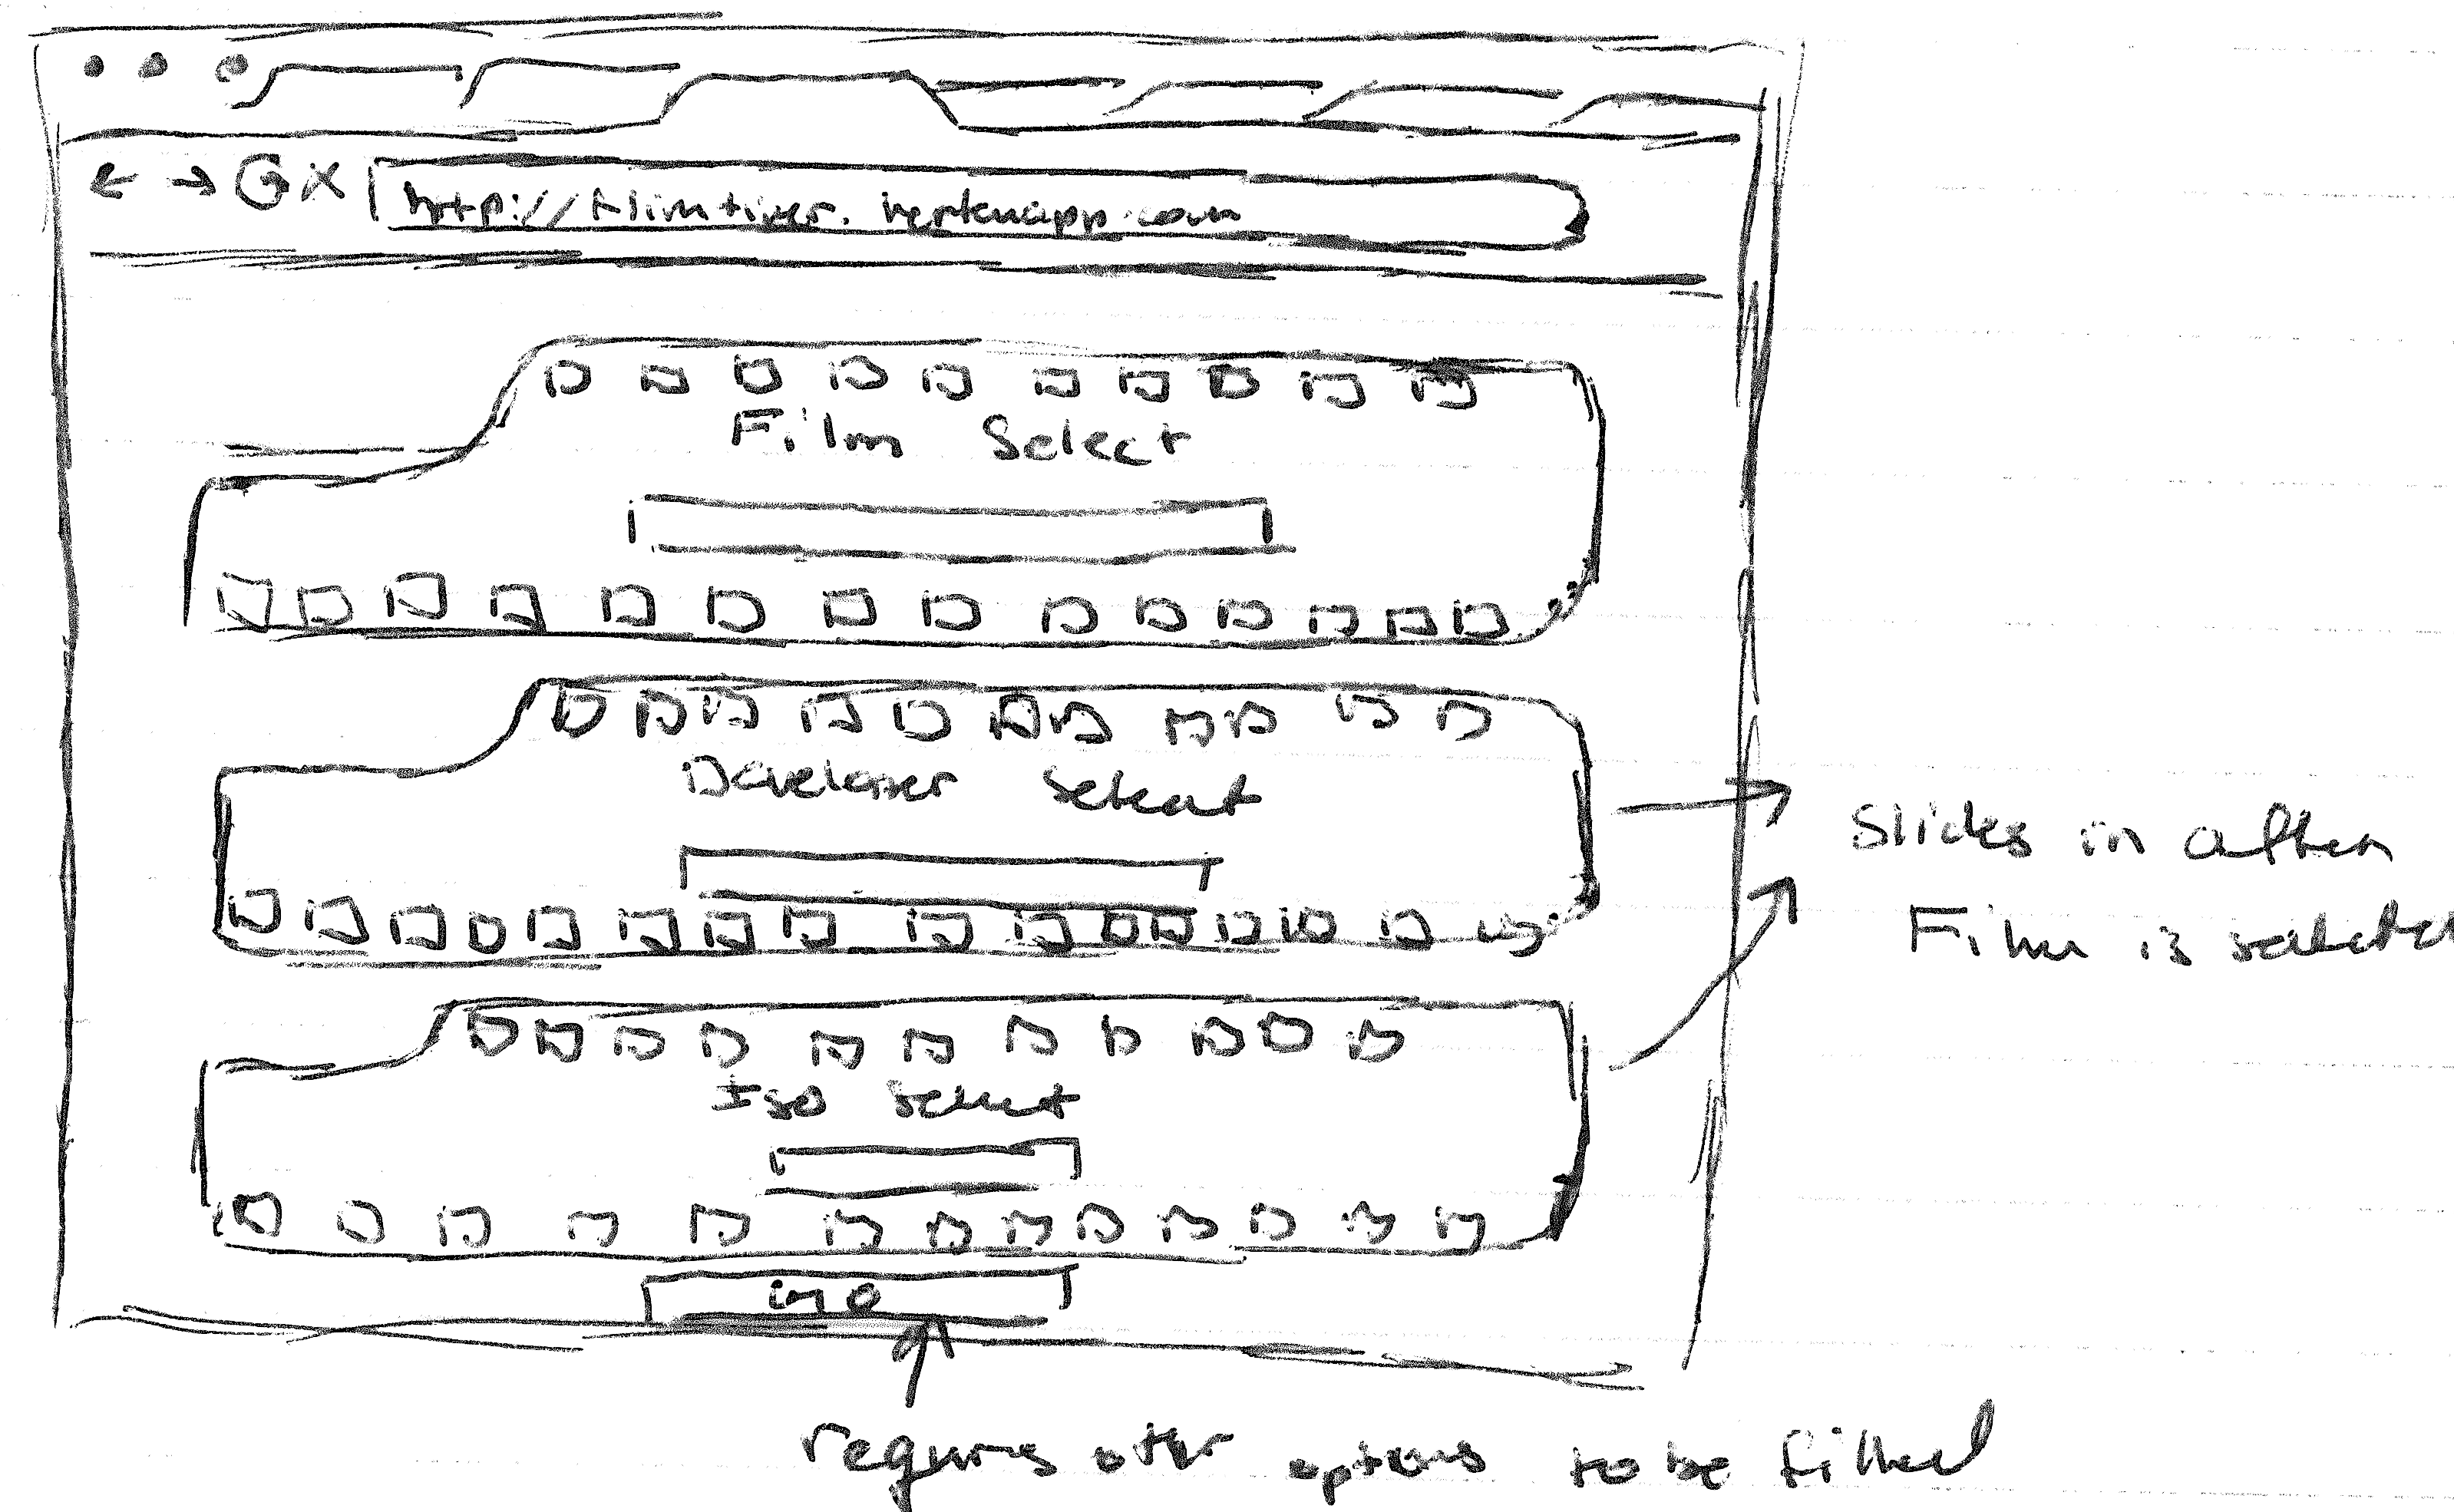 http://filmtimer.herokuapp.com
Film Select
Developer Select
Slides in after
Film is selected
Iso Select
go
requires other options to be filled